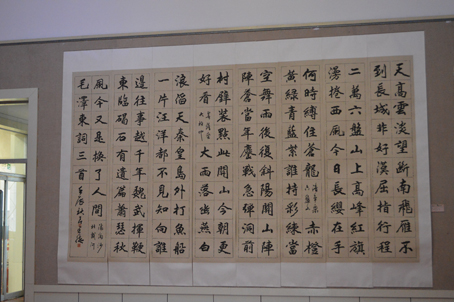 天高雲淡望斷南飛雁不
到長城非好漢屈指行程
二萬六盤山上高峰紅旗
漫捲西風今日長纓在手
何時縛住蒼龍清平樂六盤山赤橙
黃綠青藍紫誰持彩練當
空舞雨後復斜陽關山陣
陣蒼當年鏖戰急彈洞前
村壁裝點此關山今朝更
好看菩薩蠻大柏地大雨落幽燕白
浪滔天秦皇島外打魚船
一片汪洋都不見知向誰
邊往事越千年魏武揮鞭
東臨碣石有遺篇蕭瑟秋
風今又是換了人間浪淘沙北戴河
毛澤東詞三首壬辰